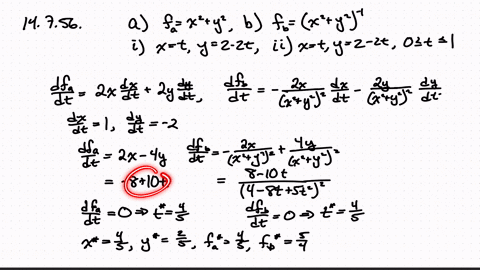 14.7.56. a) f_a = x²+y², b) f_b = (x²+y²)⁻¹
i) x=t, y=2-2t, ii) x=t, y=2-2t, 0≤t≤1
df_a/dt = 2x dx/dt + 2y dy/dt, df_b/dt = - 2x/(x²+y²)² dx/dt - 2y/(x²+y²)² dy/dt
dx/dt = 1, dy/dt = -2
df_a/dt = 2x-4y df_b/dt = - 2x/(x²+y²)² + 4y/(x²+y²)²
= -8+10t = 8-10t/(4-8t+5t²)²
df_a/dt = 0 ⇒ t* = 4/5 df_b/dt = 0 ⇒ t* = 4/5
x* = 4/5, y* = 2/5, f_a* = 4/5, f_b* = 5/4